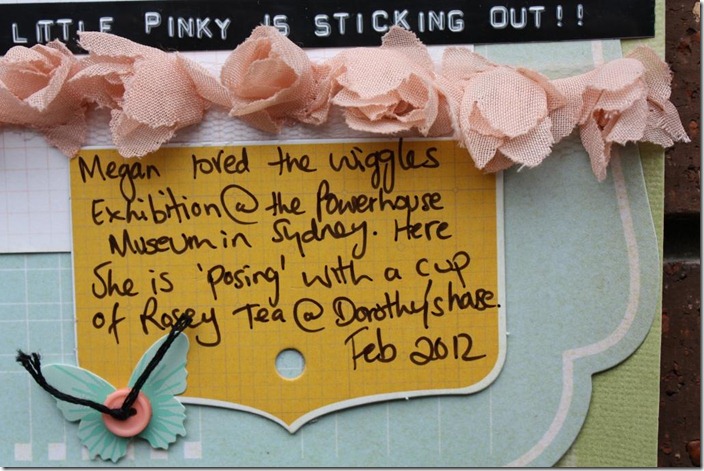 LITTLE PINKY IS STICKING OUT!!
Megan loved the wiggles
Exhibition @ the Powerhouse
Museum in Sydney. Here
She is 'posing' with a cup
of Rosey Tea @ Dorothy's house.
Feb 2012